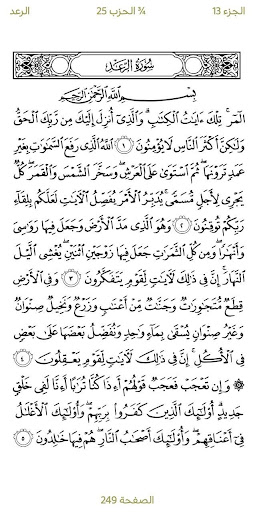 الجزء 13 ¾ الحزب 25 الرعد
سُورَةُ الرَّعْدِ
بِسْمِ ٱللَّهِ ٱلرَّحْمَٰنِ ٱلرَّحِيمِ
الٓمٓر ۚ تِلْكَ ءَايَٰتُ ٱلْكِتَٰبِ ۗ وَٱلَّذِىٓ أُنزِلَ إِلَيْكَ مِن رَّبِّكَ ٱلْحَقُّ
وَلَٰكِنَّ أَكْثَرَ ٱلنَّاسِ لَا يُؤْمِنُونَ ١ ٱللَّهُ ٱلَّذِى رَفَعَ ٱلسَّمَٰوَٰتِ بِغَيْرِ
عَمَدٍ تَرَوْنَهَا ۖ ثُمَّ ٱسْتَوَىٰ عَلَى ٱلْعَرْشِ ۖ وَسَخَّرَ ٱلشَّمْسَ وَٱلْقَمَرَ ۖ كُلٌّ
يَجْرِى لِأَجَلٍ مُّسَمًّى ۚ يُدَبِّرُ ٱلْأَمْرَ يُفَصِّلُ ٱلْءَايَٰتِ لَعَلَّكُم بِلِقَآءِ
رَبِّكُمْ تُوقِنُونَ ٢ وَهُوَ ٱلَّذِى مَدَّ ٱلْأَرْضَ وَجَعَلَ فِيهَا رَوَٰسِىَ
وَأَنْهَٰرًا ۖ وَمِن كُلِّ ٱلثَّمَرَٰتِ جَعَلَ فِيهَا زَوْجَيْنِ ٱثْنَيْنِ ۖ يُغْشِى ٱلَّيْلَ
ٱلنَّهَارَ ۚ إِنَّ فِى ذَٰلِكَ لَءَايَٰتٍ لِّقَوْمٍ يَتَفَكَّرُونَ ٣ وَفِى ٱلْأَرْضِ
قِطَعٌ مُّتَجَٰوِرَٰتٌ وَجَنَّٰتٌ مِّنْ أَعْنَٰبٍ وَزَرْعٌ وَنَخِيلٌ صِنْوَانٌ
وَغَيْرُ صِنْوَانٍ يُسْقَىٰ بِمَآءٍ وَٰحِدٍ وَنُفَضِّلُ بَعْضَهَا عَلَىٰ بَعْضٍ
فِى ٱلْأُكُلِ ۚ إِنَّ فِى ذَٰلِكَ لَءَايَٰتٍ لِّقَوْمٍ يَعْقِلُونَ ٤
۞ وَإِن تَعْجَبْ فَعَجَبٌ قَوْلُهُمْ أَءِذَا كُنَّا تُرَٰبًا أَءِنَّا لَفِى خَلْقٍ
جَدِيدٍ ۗ أُو۟لَٰٓئِكَ ٱلَّذِينَ كَفَرُوا۟ بِرَبِّهِمْ ۖ وَأُو۟لَٰٓئِكَ ٱلْأَغْلَٰلُ
فِىٓ أَعْنَاقِهِمْ ۖ وَأُو۟لَٰٓئِكَ أَصْحَٰبُ ٱلنَّارِ ۖ هُمْ فِيهَا خَٰلِدُونَ ٥
الصفحة 249